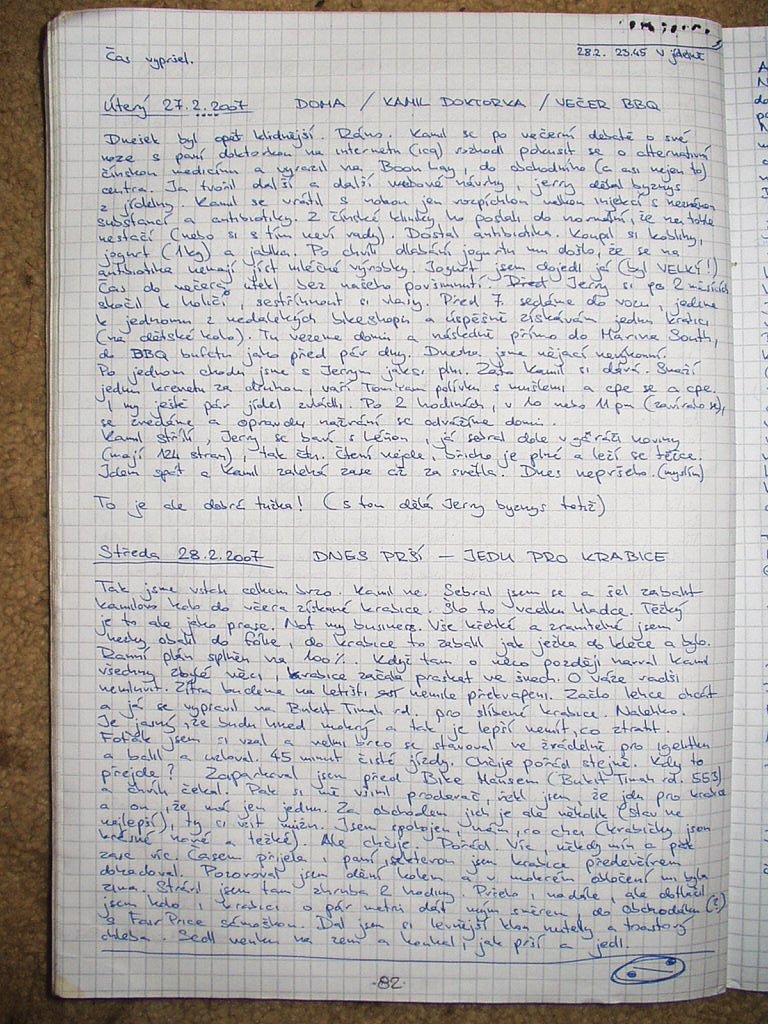 28.2. 23.45 V jídelně
Čas vypršel.
Úterý 27.2.2007 DOMA / KAMIL DOKTORKA / VEČER BBQ
Dnešek byl opět klidnější. Ráno. Kamil se po večerní debatě o své
noze s paní doktorkou na internetu (icq) rozhodl pokusit se o alternativní
čínskou medicínu a vyrazil na Boon Lay, do obchodního (a asi nejen to)
centra. Ja tvořil další a další webové návrhy, jerry dělal byznys
z jídelny. Kamil se vrátil s nohou jen rozpíchlou velkou injekcí s neznámou
substancí a antibiotiky. Z čínské kliniky ho poslali do normální, že na tohle
nestačí (nebo si s tím neví rady). Dostal antibiotika. Koupil si koblihy,
jogurt (1kg) a jablka. Po chvíli dlabání jogurtu mu došlo, že se na
antibiotika nemají jíst mléčné výrobky. Jogurt jsem dojedl já (byl VELKÍ!)
Čas do večera utekl bez našeho povšimnutí. Jerry si po 2 měsících
skočil k holiči, sestřihnout si vlasy. Před 7 sedáme do vozu, jedeme
k jednomu z nedalekých bikeshopů a úspěšně získávám jednu krabici
(na dětské kolo). Tu vezeme domů a následně přímo do Marina South,
do BBQ bufetu jako před pár dny. Dneska jsme nějací nevýkonní.
Po jednom chodu jsme s Jerrym jaksi plní. Zato Kamil si dává. Smaží
jednu krevetu za druhou, vaří Tom Yam polívku s mušlemi a cpe se a cpe.
I my ještě pár jídel zvládli. Po 2 hodinách, v 10 nebo 11 pm (zavíralo se),
se zvedáme a opravdu nažraní se odvážíme domů.
Kamil střílí, Jerry se baví s Léňou, já sebral dole v garáži noviny
(mají 124 stran), tak čtu. Čtení nejde, břicho je plné a leží se těžce.
Jdem spát a Kamil zalehá zase až za světla. Dnes nepršelo. (myslím)
To je ale dobrá tužka! (s tou dělá Jerry byznys totiž)
Středa 28.2.2007 DNES PRŠÍ – JEDU PRO KRABICE
Tak jsme vstali celkem brzo. Kamil ne. Sebral jsem se a šel zabalit
kamilovo kolo do včera získané krabice. Šlo to vcelku hladce. Těžký
je to ale jako prase. Not my business. Vše křehké a zranitelné jsem
hezky obalil do fólie, do krabice to zabalil jak ježka do klece a bylo.
Ranní plán splněn na 100%. Když tam o něco později narval Kamil
všechny zbylé věci, krabice začala praskat ve švech. O váze radši
nemluvit. Zítra budeme na letišti nemile překvapeni. Začlo lehce chcát
a já se vypravil na Bukit Timah rd. pro slíbené krabice. Nalehko.
Je jasný, že budu hned mokrý a tak je lepší nemít, co ztratit.
Foťák jsem si vzal a velmi brzo se stavoval ve zvrádelně pro igelitku
a balil a uzloval. 45 minut čisté jízdy. Chčije pořád stejně. Kdy to
přejde? Zaparkoval jsem před Bike Hausem (Bukit Timah rd. 553)
a chvíli čekal. Pak si mě všiml prodavač, řekl jsem, že jdu pro krabice
a on, že má jen jednu. Za obchodem jich je ale několik (stav ne
nejlepší), ty si vzít můžu. Jsem spokojen, mám, co chci (krabičky jsou
krásné nové a těžké). Ale chčije. Pořád. Víc, někdy míň a pak
zase víc. Časem přijela i paní, se kterou jsem krabice předevčírem
dohadoval. Pozoroval jsem dění kolem a v mokrém oblečení mi byla
zima. Strávil jsem tam zhruba 2 hodiny. Pršelo i nadále, ale dotlačil
jsem kolo i krabice o pár metrů dál mým směrem, do obchoďáku (?)
s FairPrice sámoškou. Dal jsem si levnější klon nutely a toastový
chleba. Sedl venku na zem a koukal, jak prší a jedl.
-82-